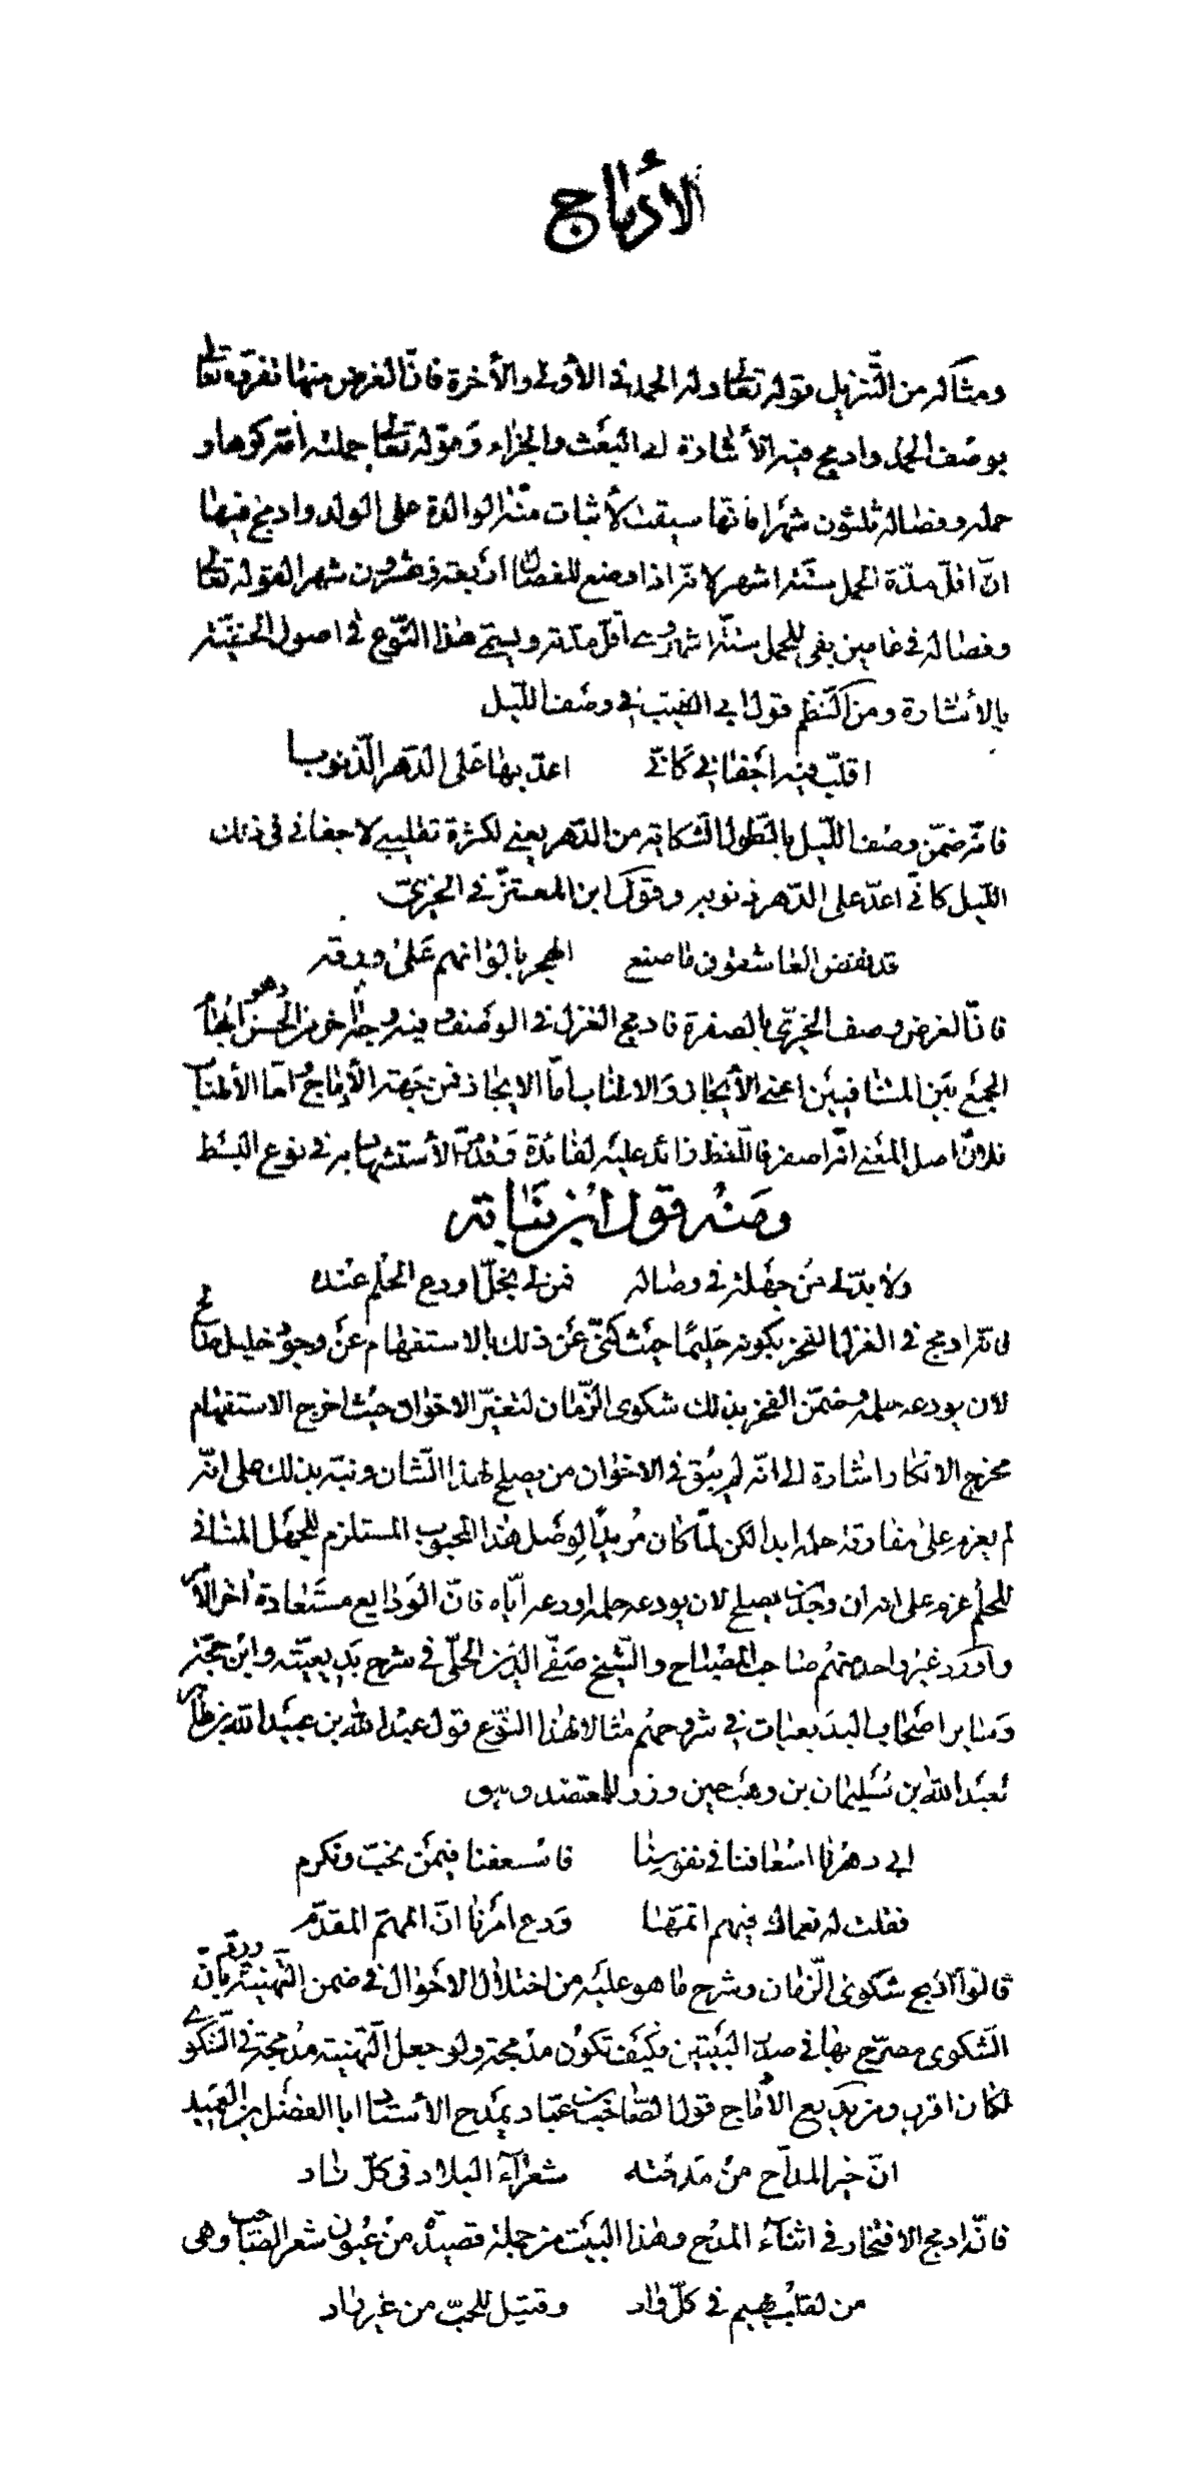 الأدماج
ومثاله من التّنزيل قوله تعالى وله الحمد في الأولى والأخرة فانّ الغرض منها تفرّده تعالى
بوصف الحمد وادمج فيه الأشارة الى البعث والجزاء وقوله تعالى حملته امّه كرها و
حمله وفصاله ثلثون شهرا فانّها سيقت لأثبات منّة الوالدة على الولد وادمج فيها
انّ اقلّ مدّة الحمل ستّة اشهر لانّه اذا وضع للفصال اربعة وعشرون شهرا لقوله تعالى
وفصاله في عامين بقي للحمل ستّة اشهر وهي اقلّ مدّته ويسمّى هذا النّوع في اصول الحنفيّة
بالأشارة ومن النّظم قول ابي الطيّب في وصف اللّيل
اقلّب فيه اجفاني كانّي اعدّ بها على الدّهر الذّنوبا
فانّه ضمّن وصف اللّيل بالطّول الشّكاية من الدّهر يعني لكثرة تقليبي لاجفاني في ذلك
اللّيل كانّي اعدّ على الدّهر ذنوبه وقول ابن المعتزّ في الخيريّ
قد نفض العاشقون ما صنع الهجر بالوانهم على ورقه
فانّ الغرض وصف الخيريّ بالصفرة فادمج الغزل في الوصف وفيه وجه اخر من الحسن وهو ايهام
الجمع بين المتنافيين اعني الأيجاز والاطناب امّا الايجاز فمن جهة الأدماج وامّا الأطناب
فلانّ اصل المعنى انّه اصفر فاللّفظ زائد عليه لفائدة وقد مرّ الأستشهاد به في نوع البسط
ومنه قول ابن نباته
ولا بدّ لي من جهلة في وصاله فمن لي بخلّ اودع الحلم عنده
فانّه ادمج في الغزل الفخر بكونه حليما حيث كنّى عن ذلك بالاستفهام عن وجود خليل صالح
لان يودعه حلمه وضمّن الفخر بذلك شكوى الزّمان لتغيّر الاخوان حيث اخرج الاستفهام
مخرج الانكار اشارة الى انّه لم يبق في الاخوان من يصلح لهذا الشّان ونبّه بذلك على انّه
لم يعزم على مفارقة حلمه ابدا لكن لمّا كان مريدا لوصل هذا المحبوب المستلزم للجهل المنافي
للحلم عزم على انه ان وجد من يصلح لان يودعه حلمه اودعه ايّاه فانّ الودايع مستعادة اخر الأمر
واورد غير واحد منهم صاحب المصباح والشّيخ صفيّ الدّين الحلّي في شرح بديعيّته وابن حجّة
وساير اصحاب البديعيات في شروحهم مثالا لهذا النّوع قول عبد الله بن عبيد الله بن طاهر
لعبيد الله بن سليمان بن وهب حين وزر للمعتضد وهو
ابى دهرنا اسعافنا في نفوسنا فاسعفنا فيمن نحبّ ونكرم
فقلت له نعماك فيهم اتمّها ودع امرنا انّ المهمّ المقدّم
قالوا ادمج شكوى الزّمان وشرح ما هو عليه من اختلال الاحوال في ضمن التّهنية وردّ بانّ
الشّكوى مصرّح بها في صدر البيتين فكيف تكون مدمجة ولو جعل التّهنية مدمجة في الشّكوى
لكان اقرب ومن بديع الأدماج قول الصّاحب بن عبّاد يمدح الأستاد ابا الفضل بن العميد
انّ خير المدّاح من مدحته شعرآء البلاد في كلّ ناد
فانّه ادمج الافتخار في اثناء المدح وهذا البيت من جملة قصيدة من عيون شعر الصّاحب وهي
من لقلب يهيم في كلّ واد وقتيل للحبّ من غير واد